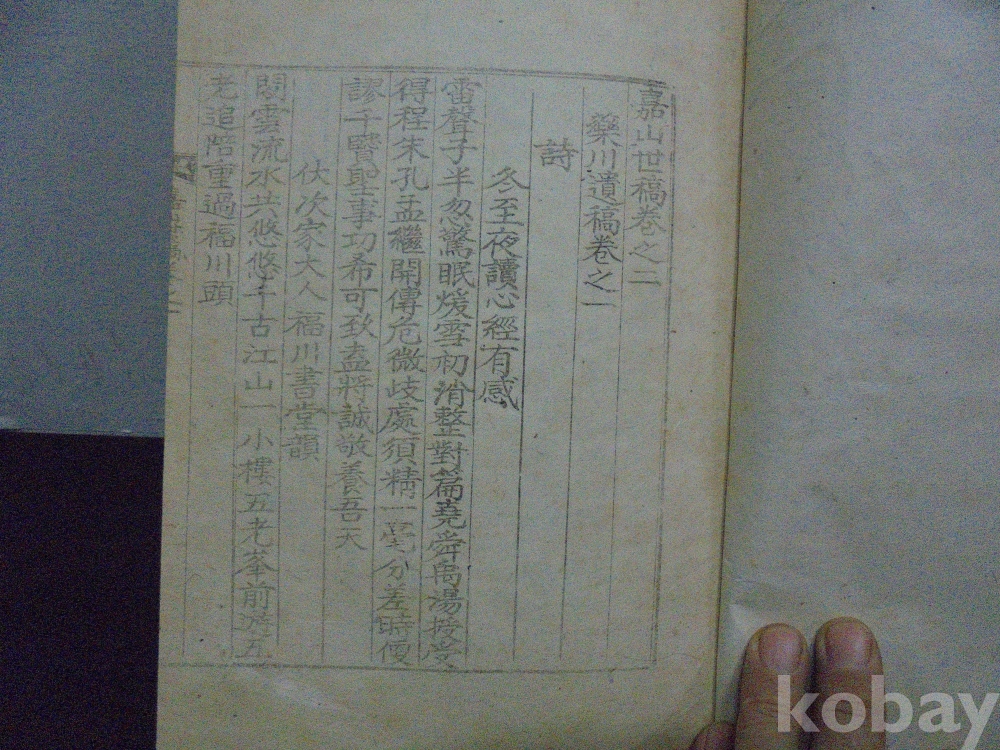 嘉山世稿卷之二
藥川遺稿卷之一
詩
冬至夜讀心經有感
雷聲子半忽驚眠煖雪初消整對篇堯舜禹湯授受
得程朱孔孟繼開傳危微歧處須精一毫分差時便
謬千賢聖事功希可致盍將誠敬養吾天
伏次家大人福川書堂韻
閒雲流水共悠悠千古江山一小樓五老峯前游五
老追陪重過福川頭
kobay